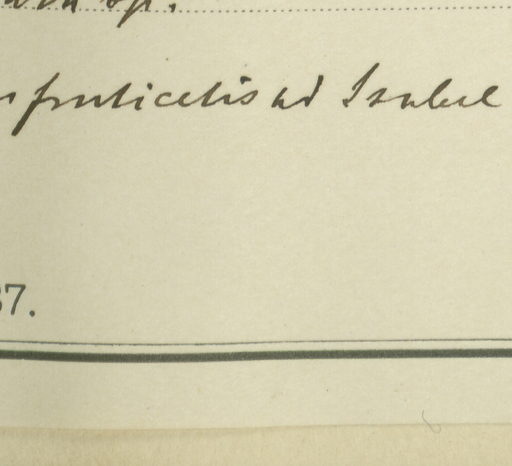 sp.
fruticetis ad Isabel
37.